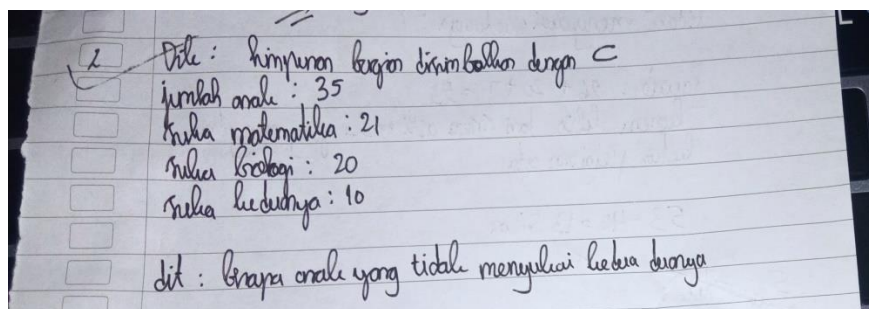 2 Dik : himpunan bagian disimbolkan dengan C
jumlah anak : 35
suka matematika : 21
suka biologi : 20
suka keduanya : 10
dit : Berapa anak yang tidak menyukai kedua duanya